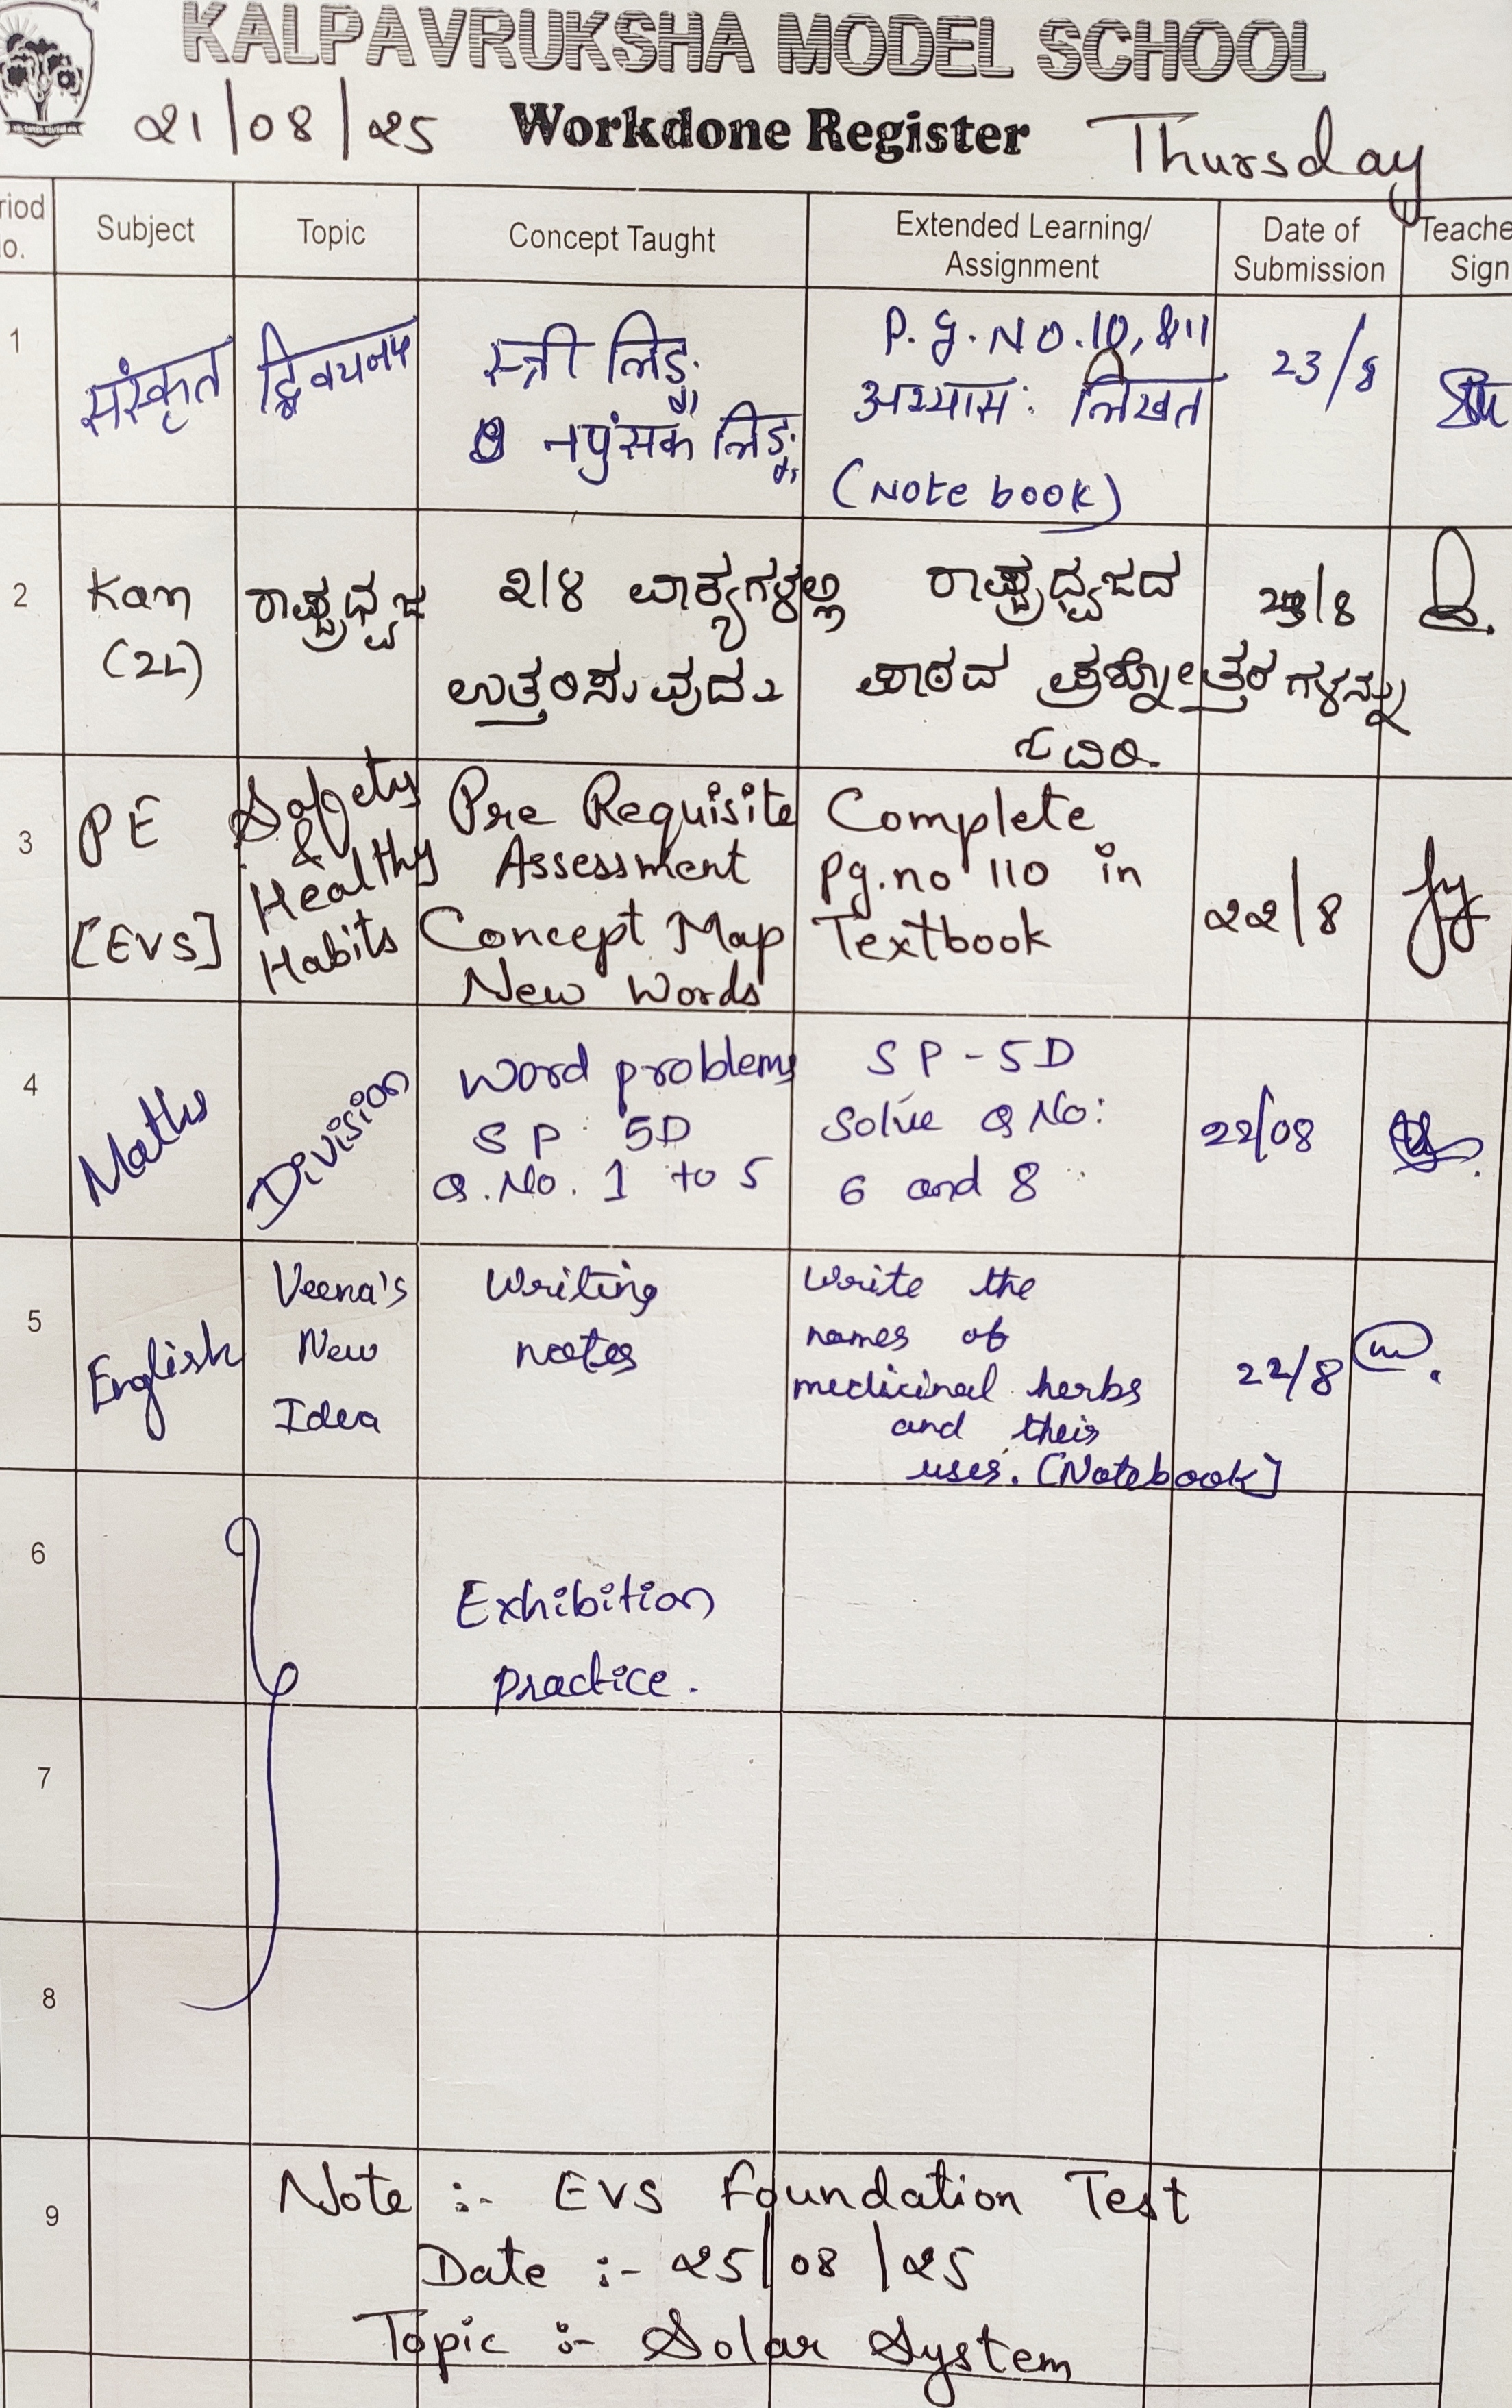 KALPAVRUKSHA MODEL SCHOOL
21/08/25 Workdone Register Thursday
riod
o.
Subject
Topic
Concept Taught
Extended Learning/
Assignment
Date of
Submission
Teache
Sign
1
संस्कृत
स्त्री लिङ्गः
नपुंसक लिङ्गः
P.g.NO.10,&11
अभ्यासः लिखत
(Note book)
23/8
2
Kan
(2L)
ರಾಷ್ಟ್ರಧ್ವಜ
೨/೪ ವಾಕ್ಯಗಳಲ್ಲಿ
ಉತ್ತರಿಸುವುದು
ರಾಷ್ಟ್ರಧ್ವಜದ
ಪಾಠದ ಪ್ರಶ್ನೋತ್ತರಗಳನ್ನು
/8
3
PE
[EVS]
Safety
&
Healthy
Habits
Pre Requisite
Assessment
Concept Map
New Words
Complete
pg.no 110 in
Textbook
22/8
4
Maths
Division
Word problems
SP 5D
Q.No. 1 to 5
SP-5D
Solve Q No:
6 and 8
22/08
5
English
Veena's
New
Idea
Writing
notes
Write the
names of
medicinal herbs
and their
uses. [Notebook]
22/8
6
Exhibition
practice.
7
8
9
Note :- EVS Foundation Test
Date :- 25/08/25
Topic :- Solar System